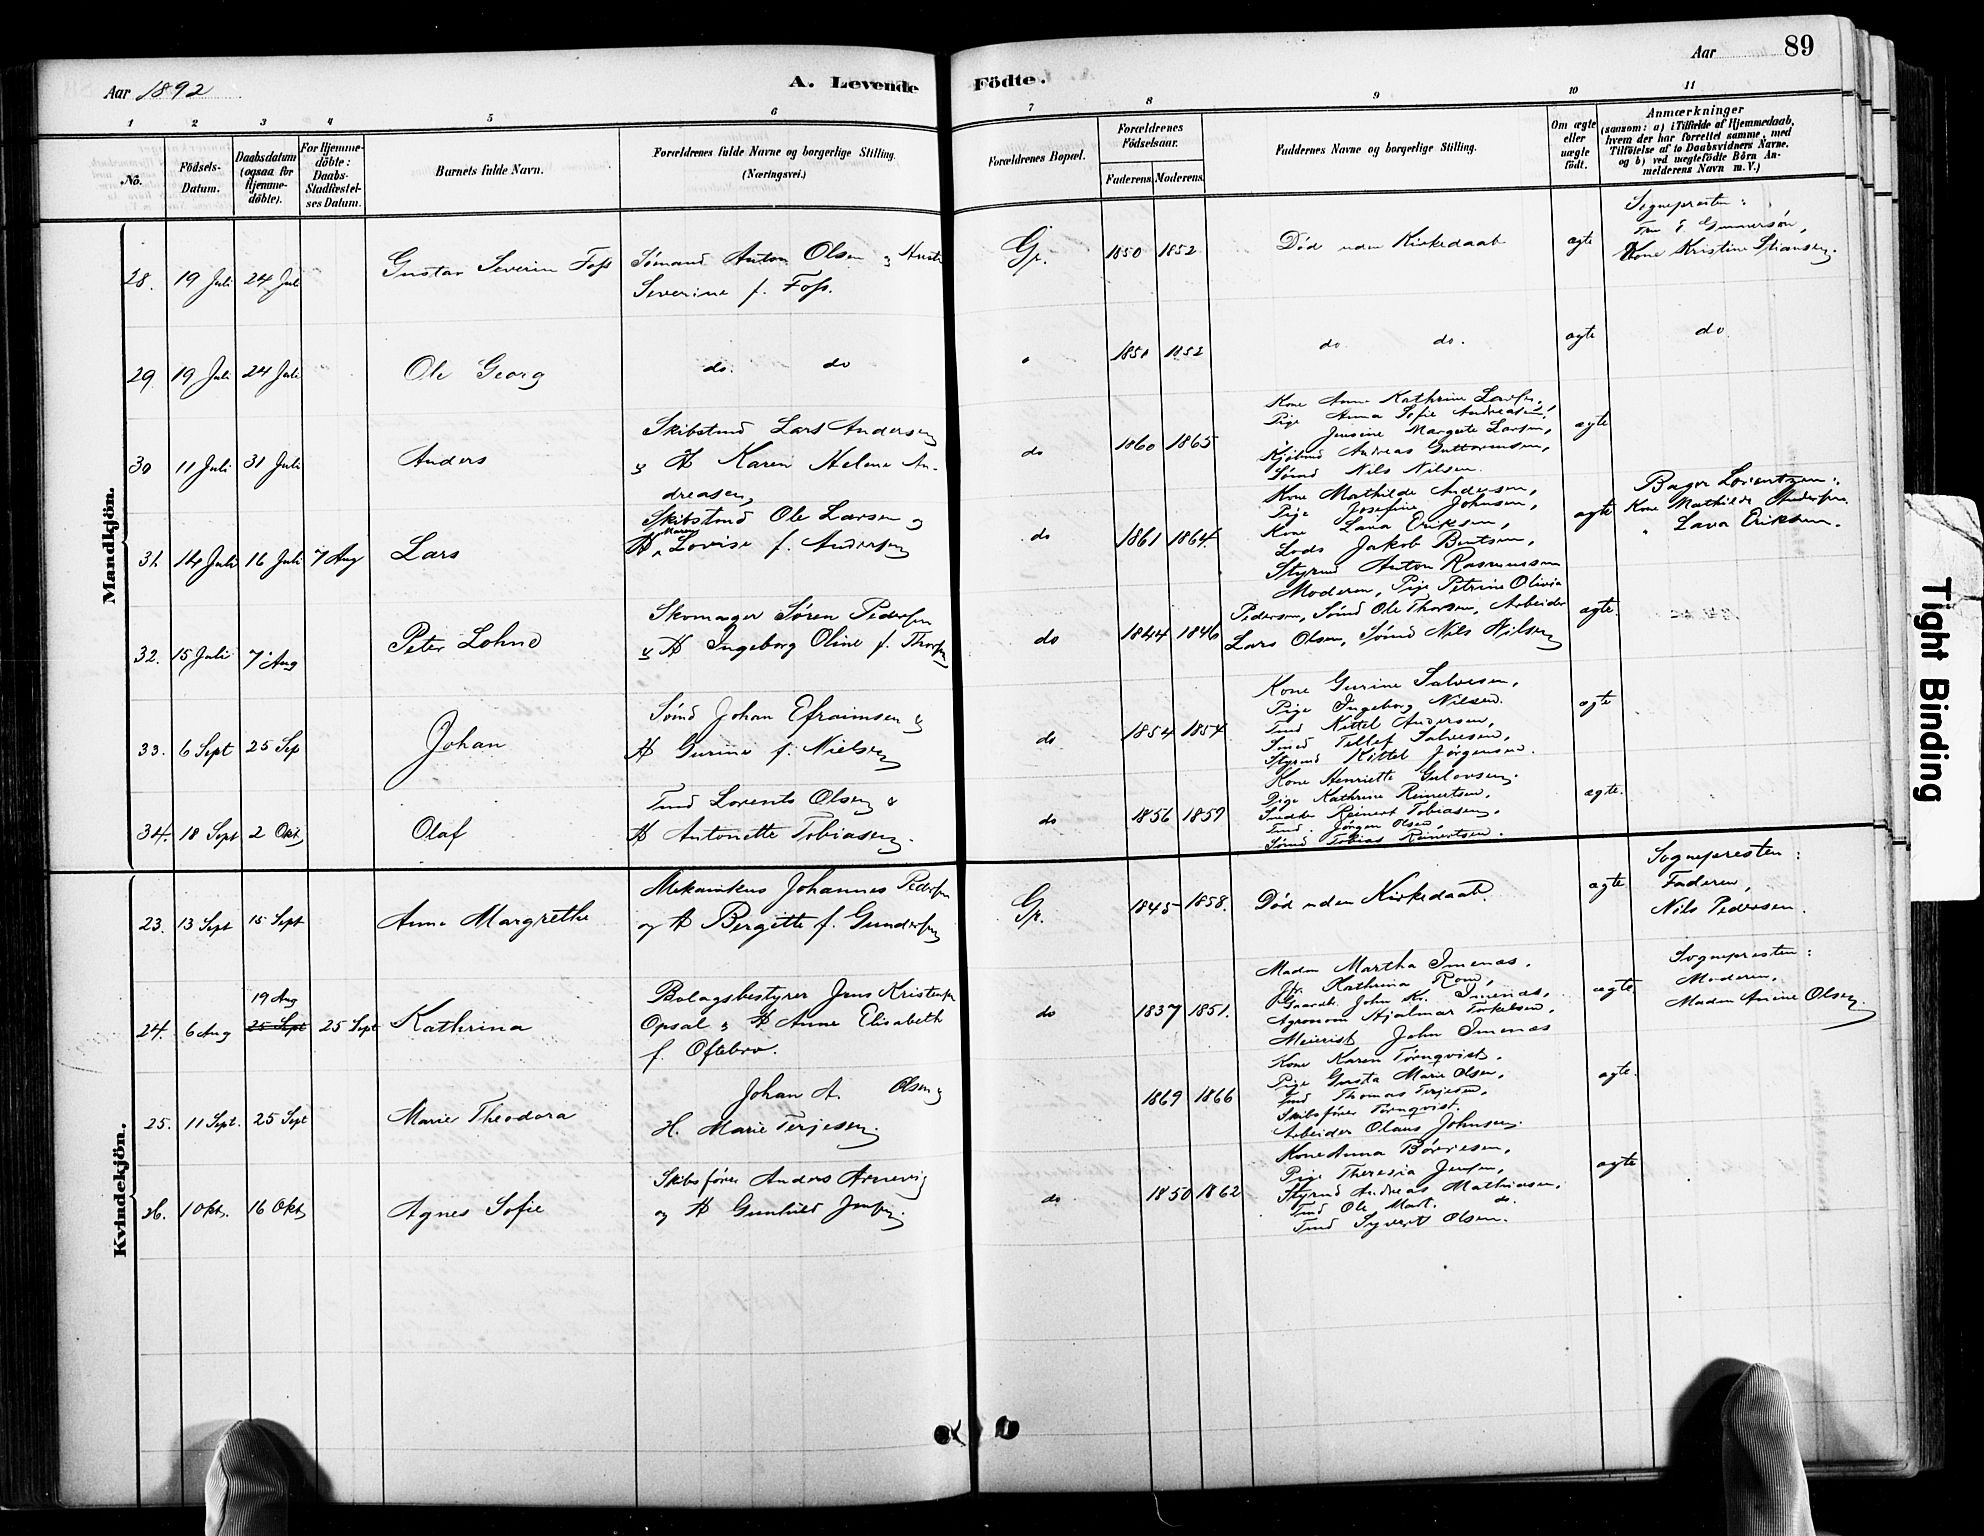 Aar 1892
A. Levende Födte.
Aar
89
1 2 3 4 5 6 7 8 9 10 11
No.
Födsels-
Datum.
Daabsdatum
(ogsaa for
Hjemme-
döbte).
For Hjemme-
döbte:
Daabs-
Stadfæstel-
ses Datum.
Barnets fulde Navn.
Forældrenes fulde Navne og borgerlige Stilling.
(Næringsvei.)
Forældrenes Bopæl.
Forældrenes
Födselsaar.
Faderens.
Moderens.
Faddernes Navne og borgerlige Stilling.
Om ægte
eller
uægte
født.
Anmærkninger
(saasom: a) i Tilfælde af Hjemmedaab,
hvem der har forrettet samme, med
Tilföielse af to Daabsvidners Navne.
og b) ved uægtefödte Börn An-
melderens Navn m. V.)
Mandkjön.
28. 19 Juli 24 Juli Gustav Severin Foss
Sømand Anton Olsen
Severine f. Foss.
Gr. 1850 1852 Død uden Kirkedaab ægte
Sognepresten:
Fru E Gunnersøn,
Kone Kristine
29. 19 Juli 24 Juli Ole Georg
do. do
1850 1852 do. do. ægte do
30 11 Juli 31 Juli Anders
Skibstmd Lars Andersen
& H Karen Helene An-
dreasen,
do 1860 1865
Kone Anne Kathrine
Pige Anna Sofie Andreasen,
Jensine Margrete Larsen,
Andreas Guttormsen,
Sømd Nils Nilsen.
ægte
31. 14 Juli 16 Juli 7 Aug Lars
Skibstmd Ole Larsen &
H. Maren Lovise f. Andersen
do 1861 1864.
Kone Mathilde Andersen,
Pige Josefine Johnsen,
Kone Lava Eriksen,
Lods Jakob Bentsen,
Styrmd Anton Rasmussen
ægte
Bager Lorentzen:
Kone Mathilde Andersen
" Lava Eriksen.
32. 15 Juli 7 Aug Peter Lohne
Skomager Søren Pedersen
& H Ingeborg Oline f. Thorsen
do 1844 1846
Moderen, Pige Petrine Olivia
Pedersen, Sømd Ole Thorsen, Arbeider
Lars Olsen, Sømd Nils Nilsen
ægte.
33. 6 Sept 25 Sep Johan
Sømd Johan Efraimsen &
H Gurine f. Nielsen
do. 1854 1854
Kone Gurine Salvesen,
Pige Ingeborg Nilsen.
Tmd Kittel Andersen,
Smed Tellef Salvesen,
Styrmd Kittel Jørgensen.
ægte
34. 18 Sept 2 Okt Olaf
Tmd Lorents Olsen &
H Antonette Tobiasen.
do 1856 1859
Kone Henriette
Pige Kathrine Reinertsen,
Reinert Tobiasen,
Tmd. Jørgen Olsen
Sømd Tobias Reinertsen.
ægte.
Kvindekjön.
23. 13 Sept 15 Sept Anne Margrethe
Mekanikus Johannes Pedersen
og H Bergitte f. Gundersen
Gr. 1845 1858. Død uden Kirkedaab. ægte
Sognepresten:
Faderen,
Nils Pedersen.
24. 6 Aug 19 Aug 25 Sept 25 Sept Kathrina
Bolagsbestyrer Jens Kristensen
Opsal & H Anne Elisabeth
f. Oftebro.
do 1837 1851.
Madm Martha Imenæs,
Kathrina
Gaardb. John Kr. Imenæs,
Agronom Hjalmar Torkelsen,
Meierist John Imenæs
ægte.
Sognepresten:
Moderen,
Madam Amine Olsen
25. 11 Sept. 25 Sept Marie Theodora
Johan A. Olsen &
H. Marie Terjesen.
1869 1866
Kone Karen Tørnqvist,
Pige Gusta Marie Olsen,
Tmd Thomas Terjesen,
Skibsfører Tørnqvist.
Arbeider Olaus Johnsen.
ægte.
26. 1 Okt. 16 Okt Agnes Sofie
Skibsfører Anders Arnevig
og H Gunhild Jensen.
do 1850 1862
Kone Anna Børresen,
Pige Theresia Jensen,
Styrmd Andreas Mathiasen,
Tmd Ole Mart. do.
Tmd Syvert Olsen.
ægte
Tight Binding